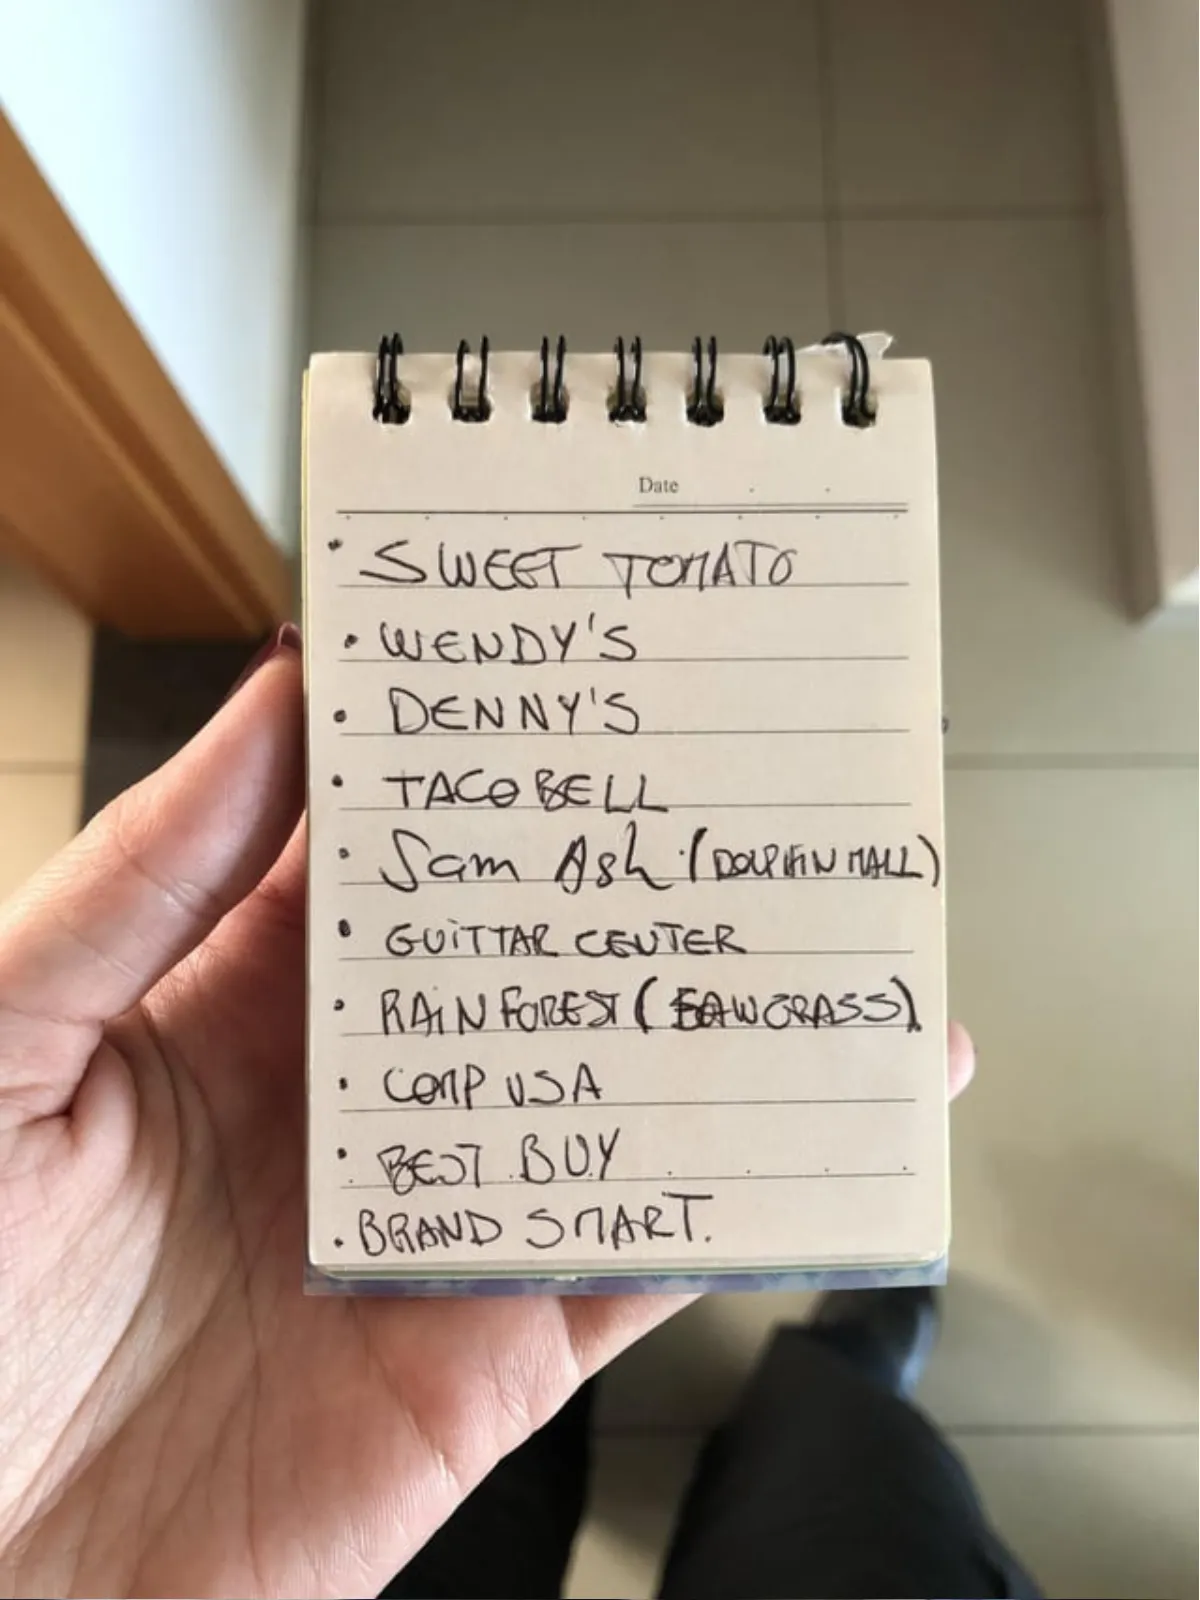 Date
• SWEET TOMATO
• WENDY'S
• DENNY'S
• TACO BELL
• Sam Ash (DOLPHIN MALL)
• GUITTAR CENTER
• RAINFOREST (SAWGRASS)
• COMP USA
• BEST BUY
• BRAND SMART.